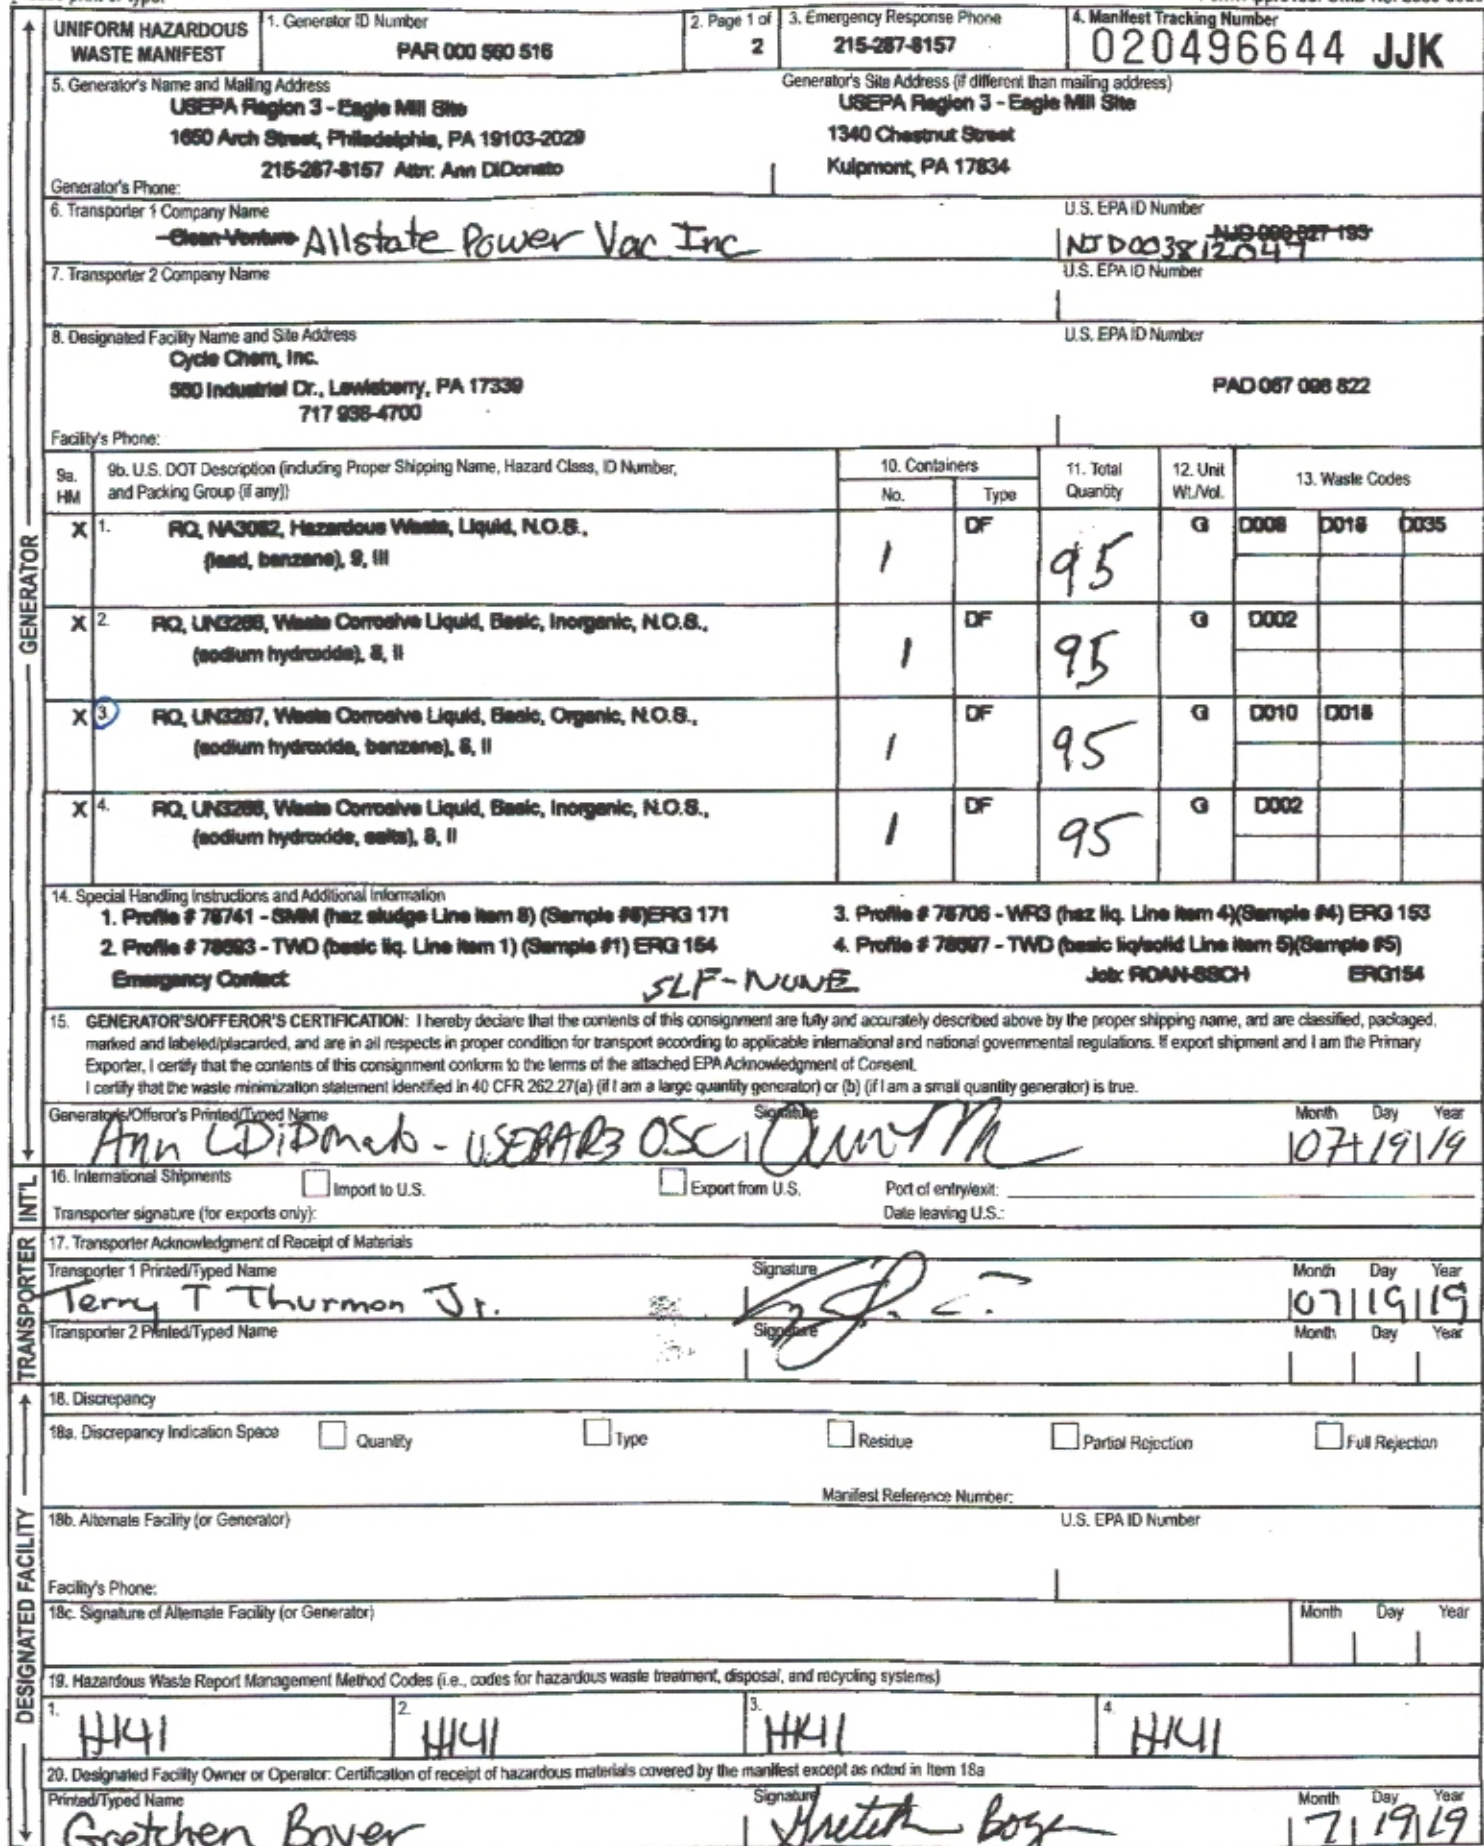 UNIFORM HAZARDOUS WASTE MANIFEST
1. Generator ID Number
PAR 000 560 516
2. Page 1 of
2
3. Emergency Response Phone
215-287-8157
4. Manifest Tracking Number
020496644 JJK
5. Generator's Name and Mailing Address
USEPA Region 3 - Eagle Mill Site
1650 Arch Street, Philadelphia, PA 19103-2029
215-287-8157 Attn: Ann DiDonato
Generator's Phone:
Generator's Site Address (if different than mailing address)
USEPA Region 3 - Eagle Mill Site
1340 Chestnut Street
Kulpmont, PA 17834
6. Transporter 1 Company Name
Clean Venture Allstate Power Vac Inc
U.S. EPA ID Number
NJD003812047
7. Transporter 2 Company Name
U.S. EPA ID Number
8. Designated Facility Name and Site Address
Cycle Chem, Inc.
550 Industrial Dr., Lewisberry, PA 17339
717 938-4700
Facility's Phone:
U.S. EPA ID Number
PAD 067 098 822
9a. HM
9b. U.S. DOT Description (including Proper Shipping Name, Hazard Class, ID Number, and Packing Group (if any))
10. Containers
No.
Type
11. Total Quantity
12. Unit Wt./Vol.
13. Waste Codes
X 1. RQ, NA3082, Hazardous Waste, Liquid, N.O.S.,
(lead, benzene), 9, III
1 DF 95 G D008 D018 D035
X 2. RQ, UN3266, Waste Corrosive Liquid, Basic, Inorganic, N.O.S.,
(sodium hydroxide), 8, II
1 DF 95 G D002
X 3. RQ, UN3267, Waste Corrosive Liquid, Basic, Organic, N.O.S.,
(sodium hydroxide, benzene), 8, II
1 DF 95 G D010 D018
X 4. RQ, UN3266, Waste Corrosive Liquid, Basic, Inorganic, N.O.S.,
(sodium hydroxide, salts), 8, II
1 DF 95 G D002
14. Special Handling Instructions and Additional Information
1. Profile # 78741 - SMM (haz sludge Line item 8) (Sample #8)ERG 171
3. Profile # 78706 - WR3 (haz liq. Line item 4)(Sample #4) ERG 153
2. Profile # 78693 - TWD (basic liq. Line item 1) (Sample #1) ERG 154
4. Profile # 78697 - TWD (basic liq/solid Line item 5)(Sample #5)
Emergency Contact
SLF-NONE
Job: ROAN-SSCH
ERG154
15. GENERATOR'S/OFFEROR'S CERTIFICATION: I hereby declare that the contents of this consignment are fully and accurately described above by the proper shipping name, and are classified, packaged,
marked and labeled/placarded, and are in all respects in proper condition for transport according to applicable international and national governmental regulations. If export shipment and I am the Primary
Exporter, I certify that the contents of this consignment conform to the terms of the attached EPA Acknowledgment of Consent.
I certify that the waste minimization statement identified in 40 CFR 262.27(a) (if I am a large quantity generator) or (b) (if I am a small quantity generator) is true.
Generator's/Offeror's Printed/Typed Name
Signature
Month Day Year
Ann DiDonato - USEPAR3 OSC
07 19 19
16. International Shipments
Import to U.S.
Export from U.S.
Port of entry/exit:
Transporter signature (for exports only):
Date leaving U.S.:
17. Transporter Acknowledgment of Receipt of Materials
Transporter 1 Printed/Typed Name
Signature
Month Day Year
Terry T Thurmon Jr.
07 19 19
Transporter 2 Printed/Typed Name
Signature
Month Day Year
18. Discrepancy
18a. Discrepancy Indication Space
Quantity
Type
Residue
Partial Rejection
Full Rejection
Manifest Reference Number:
18b. Alternate Facility (or Generator)
U.S. EPA ID Number
Facility's Phone:
18c. Signature of Alternate Facility (or Generator)
Month Day Year
19. Hazardous Waste Report Management Method Codes (i.e., codes for hazardous waste treatment, disposal, and recycling systems)
1. H141
2. H141
3. H141
4. H141
20. Designated Facility Owner or Operator: Certification of receipt of hazardous materials covered by the manifest except as noted in Item 18a
Printed/Typed Name
Signature
Month Day Year
Gretchen Boyer
7 19 19
GENERATOR
INT'L
TRANSPORTER
DESIGNATED FACILITY